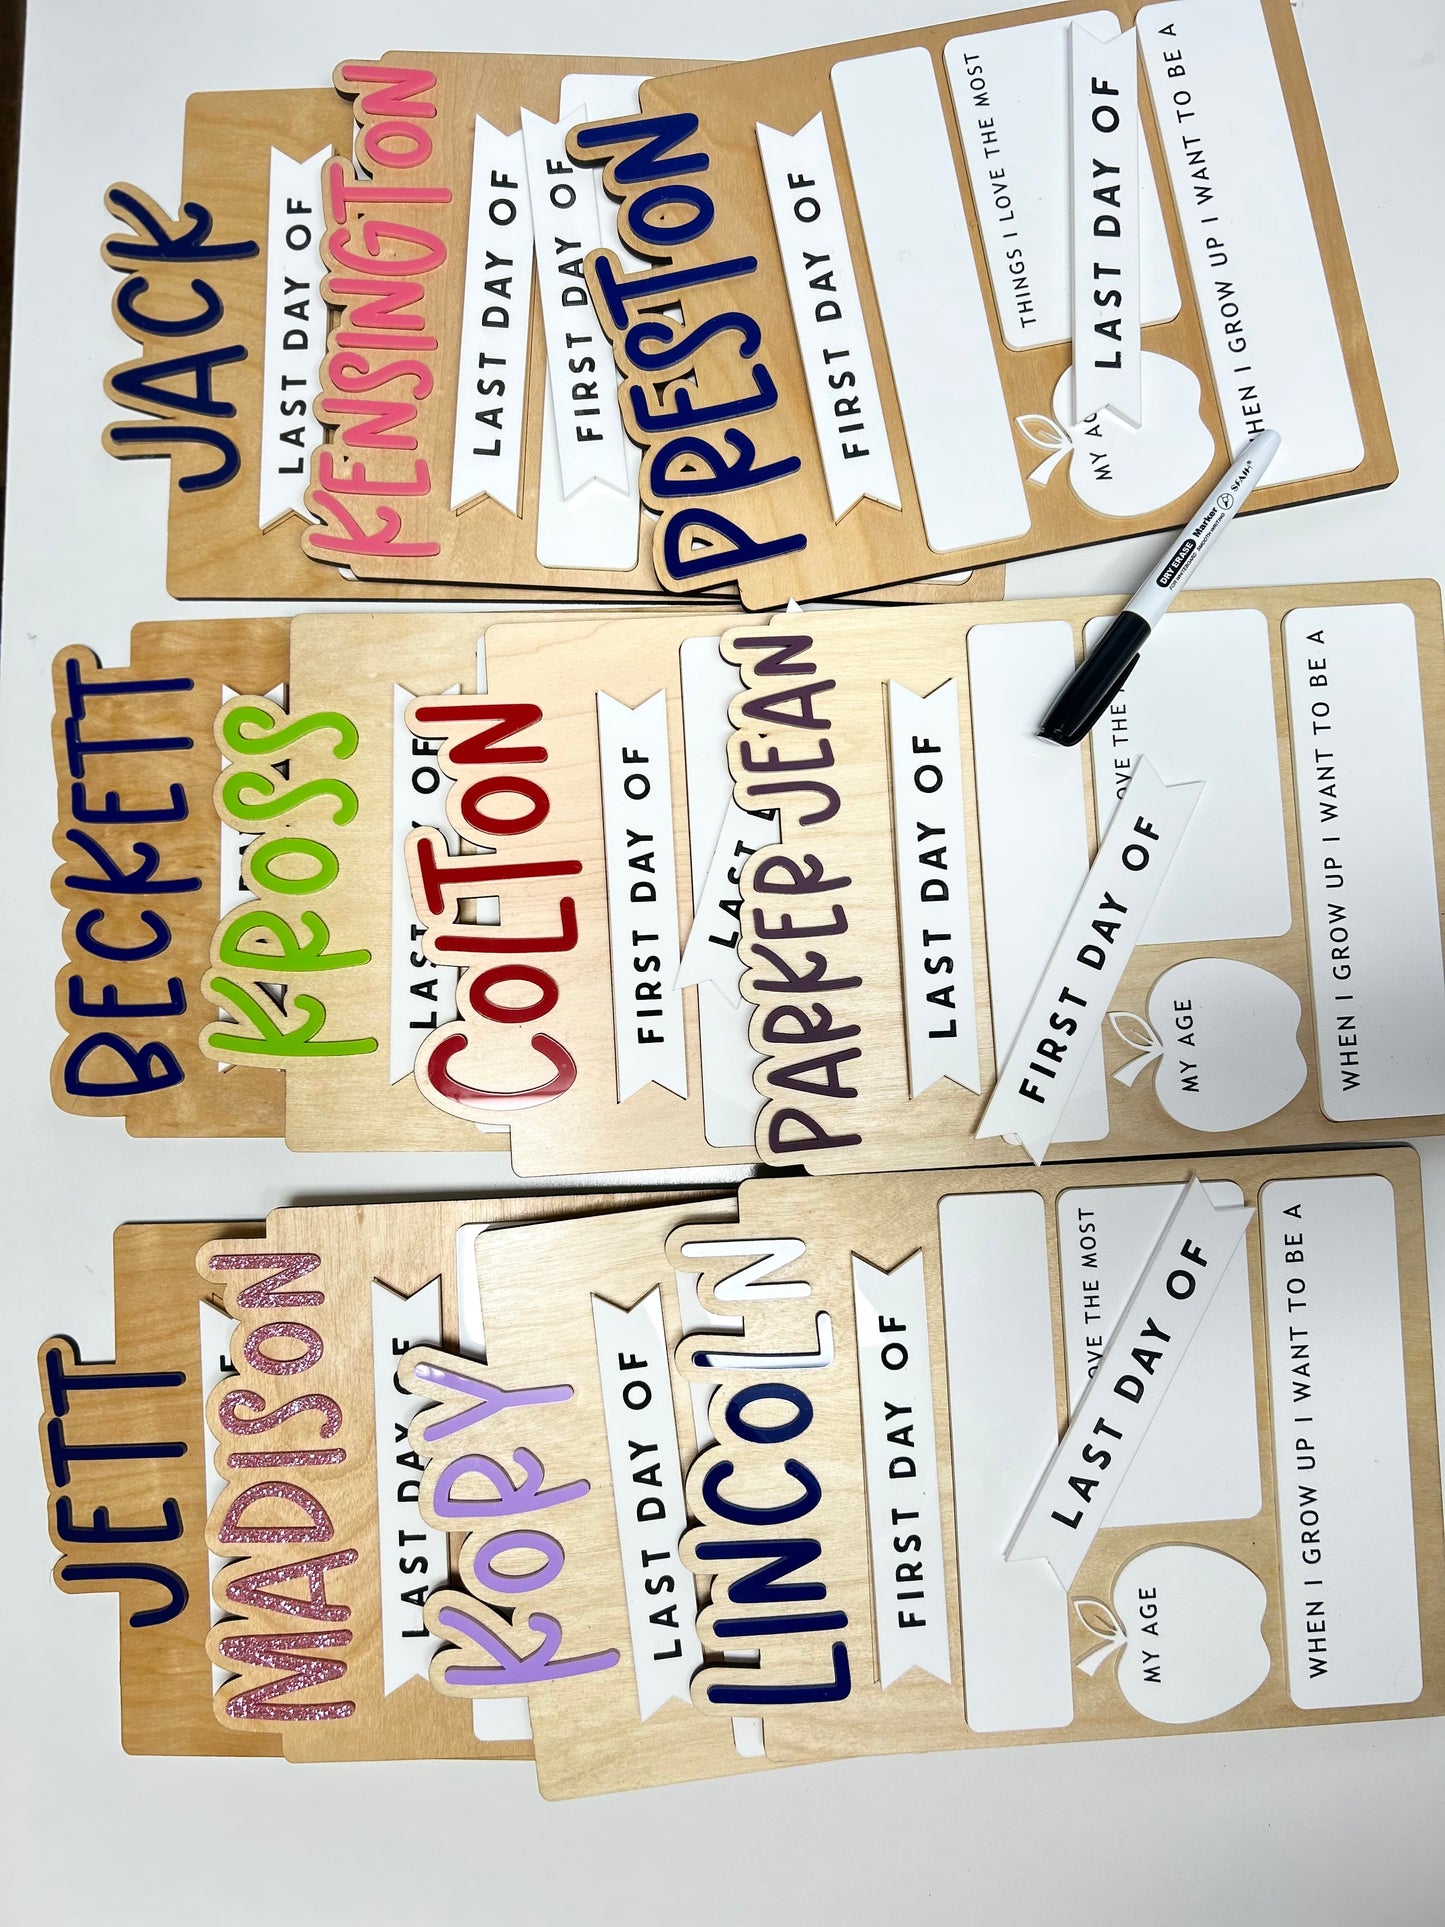 JETT
MADISON
LAST DAY OF
KORY
LAST DAY OF
LINCOLN
FIRST DAY OF
OVE THE MOST
LAST DAY OF
MY AGE
WHEN I GROW UP I WANT TO BE A
BECKETT
KROSS
LAST OF
COLTON
FIRST DAY OF
LAST
PARKER JEAN
LAST DAY OF
OVE THE
FIRST DAY OF
MY AGE
WHEN I GROW UP I WANT TO BE A
JACK
LAST DAY OF
KENSINGTON
LAST DAY OF
FIRST DAY OF
PRESTON
FIRST DAY OF
THINGS I LOVE THE MOST
LAST DAY OF
MY AG
HEN I GROW UP I WANT TO BE A
DRY ERASE Marker
FOR WHITEBOARD SMOOTH WRITING